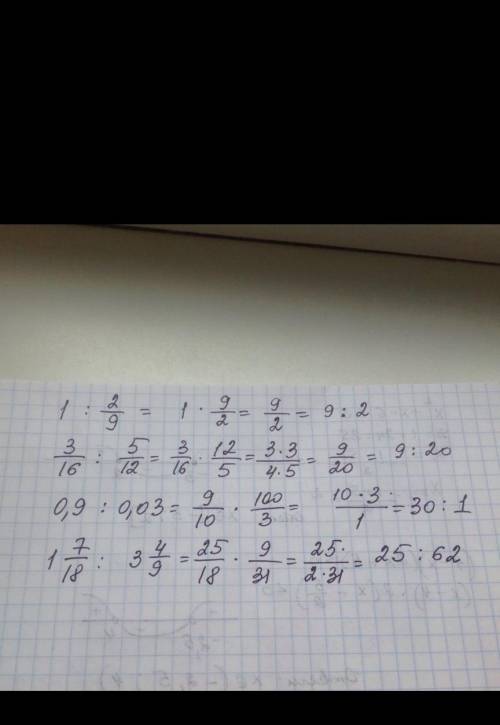 1 : 2/9 = 1 · 9/2 = 9/2 = 9 : 2
3/16 : 5/12 = 3/16 · 12/5 = 3·3/4·5 = 9/20 = 9 : 20
0,9 : 0,03 = 9/10 · 100/3 = 10·3/1 = 30 : 1
1 7/18 : 3 4/9 = 25/18 · 9/31 = 25·/2·31 = 25 : 62